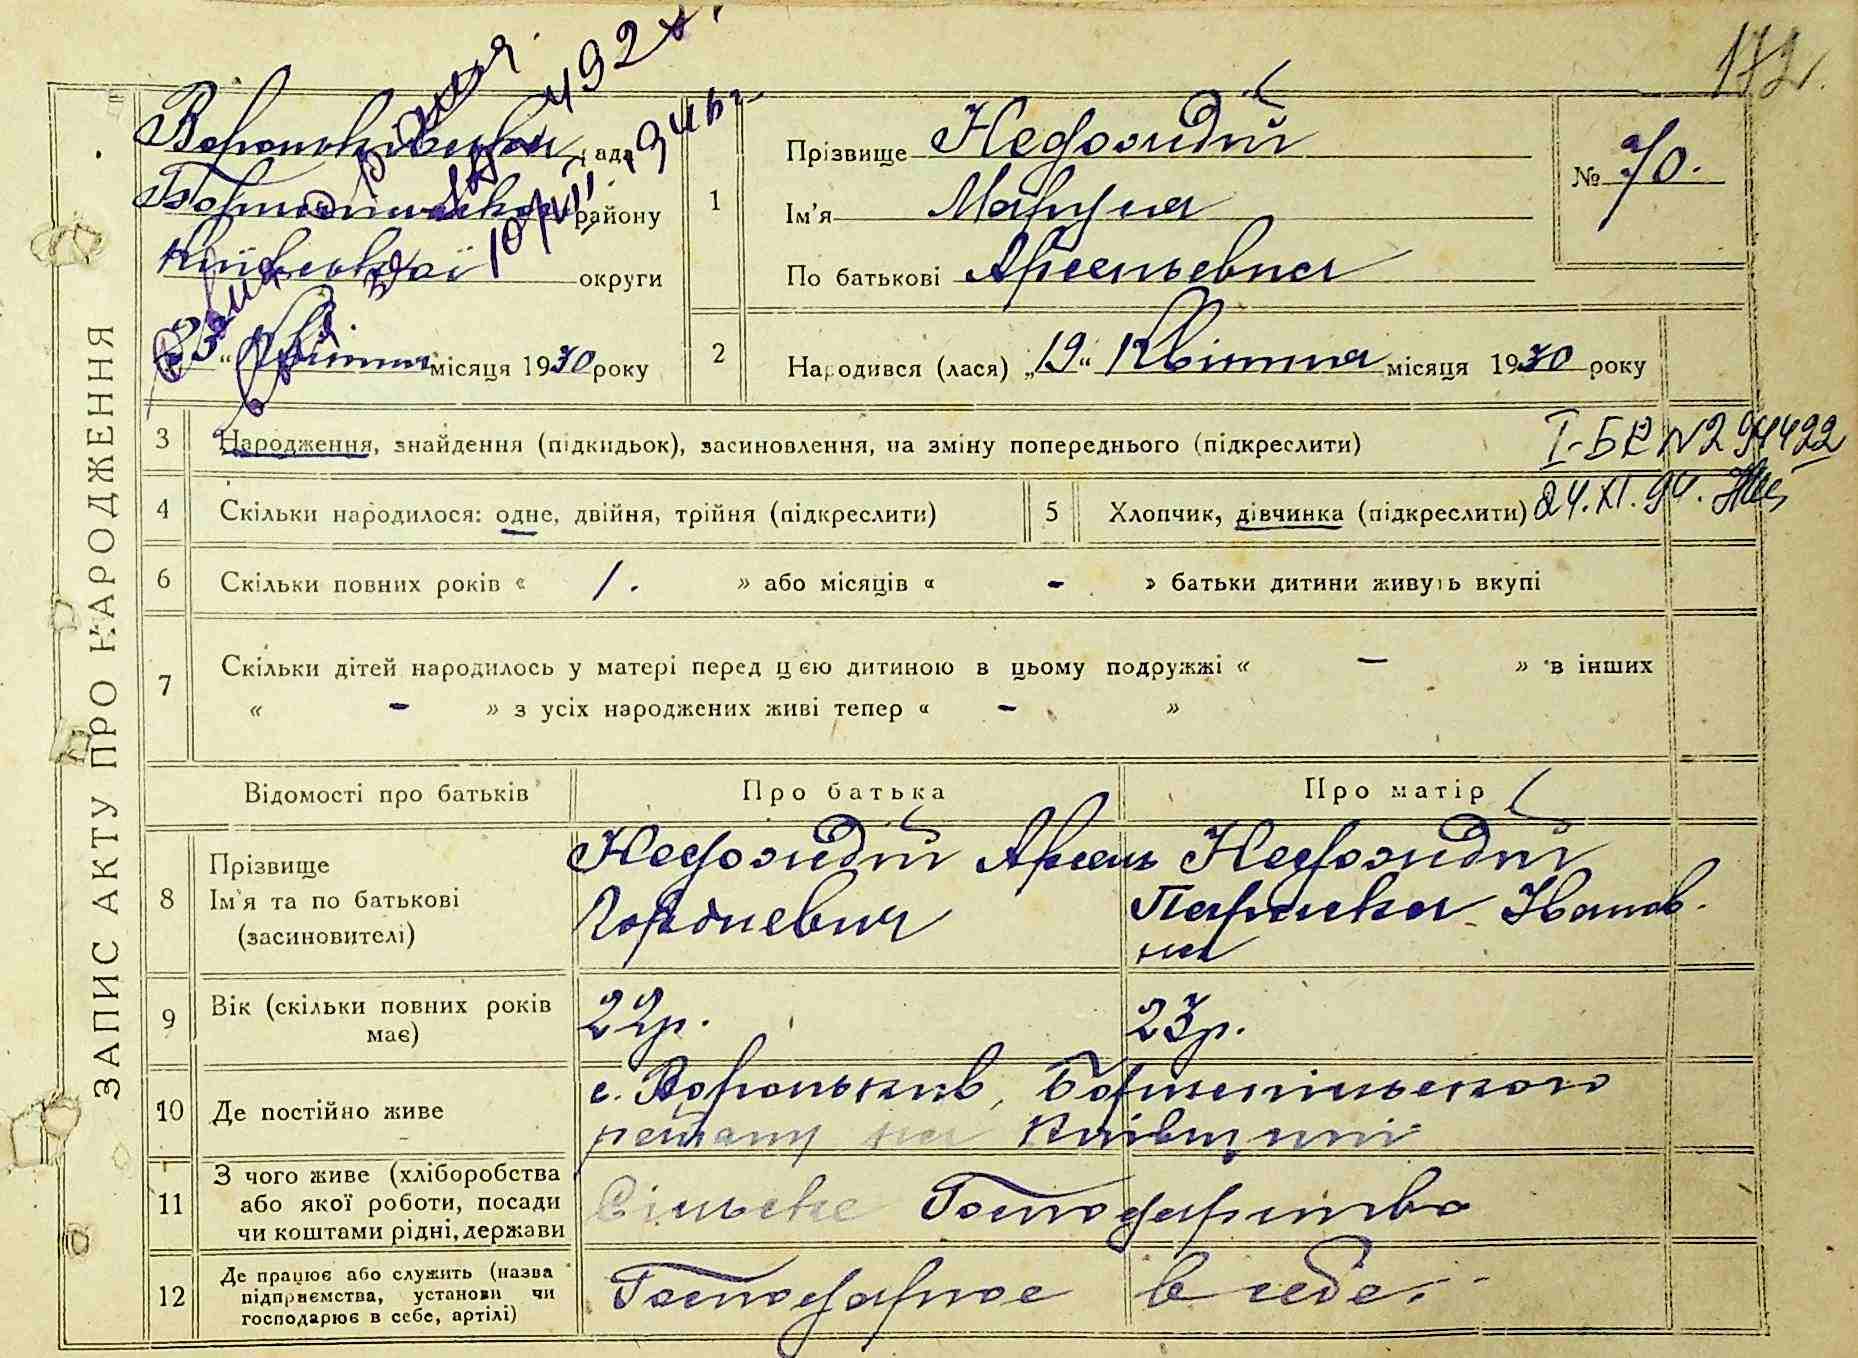 172.
Вороньківська рада
Бориспільського району
Київської округи
„23“ Квітня місяця 1930 року
1
Прізвище Недождій
Ім'я Маруся
По батькові Арсеньевна
№ 70.
2
Народився (лася) „19“ Квітня місяця 1930 року
ЗАПИС АКТУ ПРО НАРОДЖЕННЯ
3 Народження, знайдення (підкидьок), засиновлення, на зміну попереднього (підкреслити)
I-БК N 294422
4 Скільки народилося: одне, двійня, трійня (підкреслити) 5 Хлопчик, дівчинка (підкреслити)
24.XI.94.
6 Скільки повних років « 1. » або місяців « - » батьки дитини живуть вкупі
7 Скільки дітей народилось у матері перед цією дитиною в цьому подружжі « — » в інших
« - » з усіх народжених живі тепер « - »
Відомості про батьків Про батька Про матір
8 Прізвище
Ім'я та по батькові
(засиновителі)
Недождій Арсень
Гордиевич
Недождій
Параска Іванов-
на
9 Вік (скільки повних років
має)
22р. 23р.
10 Де постійно живе
с. Вороньків, Бориспільського
району на Київщині
11 З чого живе (хліборобства
або якої роботи, посади
чи коштами рідні, держави
Сільске Господарство
12 Де працює або служить (назва
підприємства, установи чи
господарює в себе, артілі)
Господарює в себе.